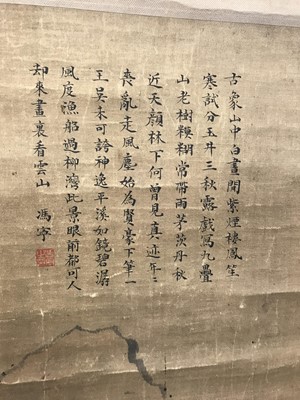 古象山中白晝閒紫煙樓鳳笙
寒試分玉井三秋露戲寫九疊
山老樹糢糊常帶雨茅茨丹秋
近天顏林下何曾見真迹年〻
喪亂走風塵始為賢豪下筆一
王吳未可誇神逸平溪如鏡碧潺
風度漁船過柳灣此景眼前都可人
却來畫裏看雲山 馮寧